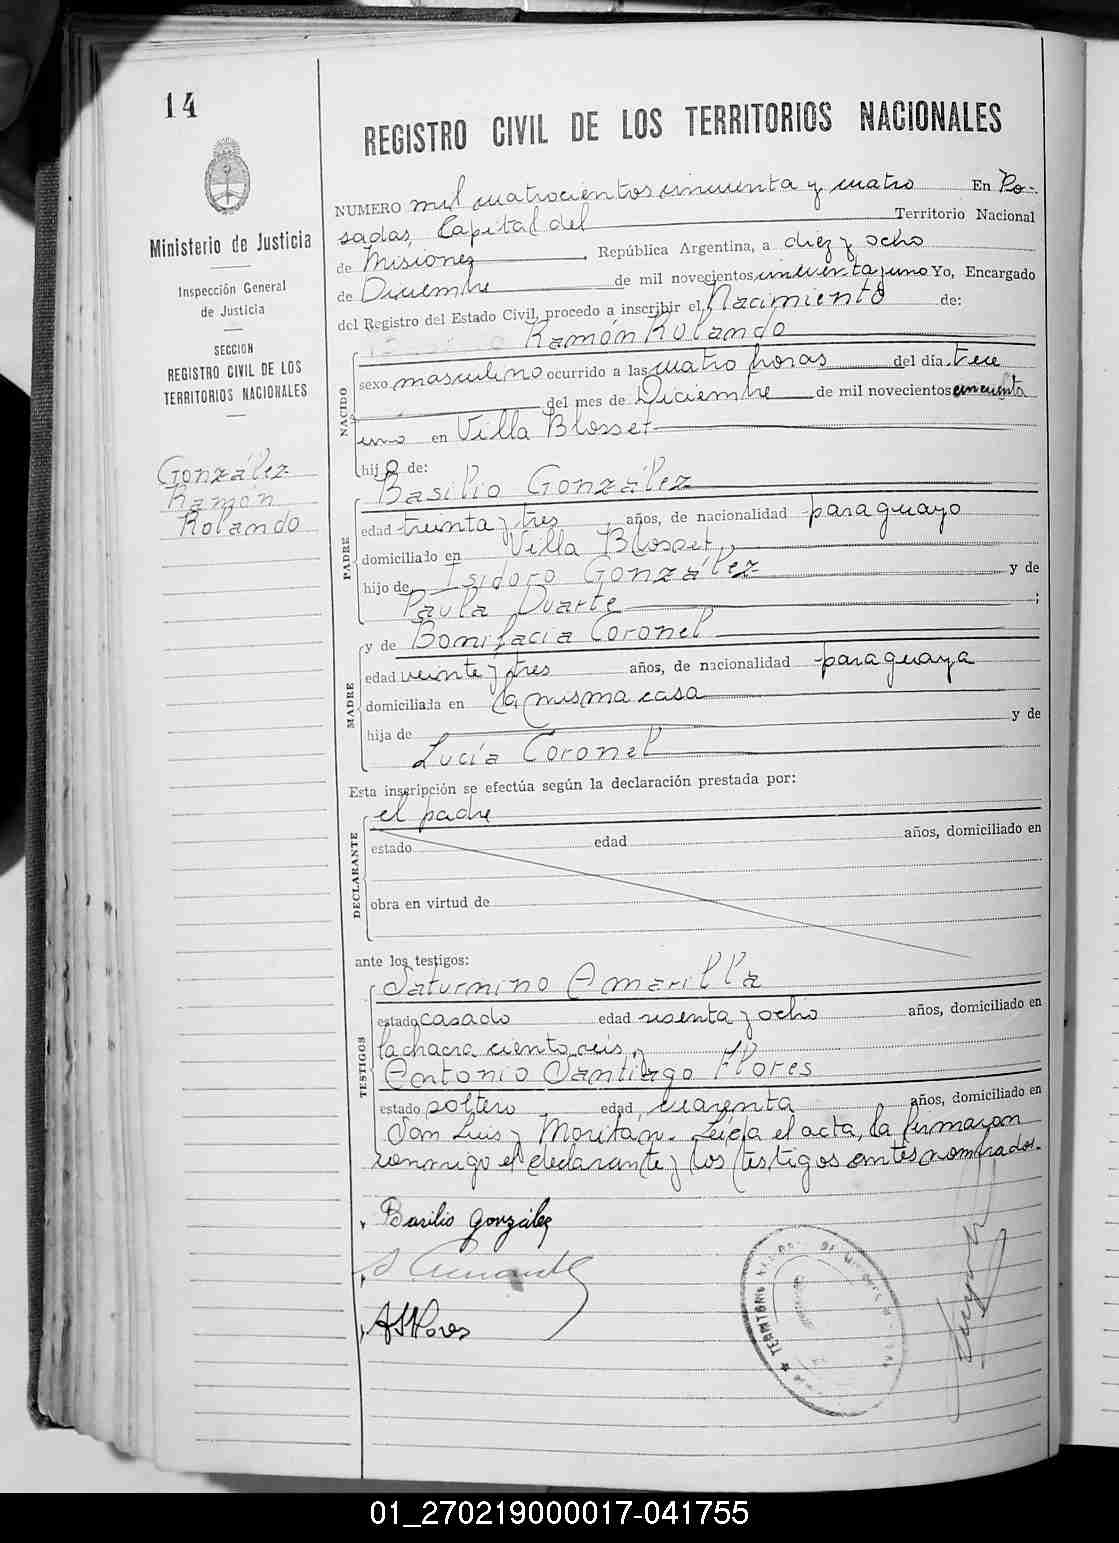 14
REGISTRO CIVIL DE LOS TERRITORIOS NACIONALES
Ministerio de Justicia
Inspección General
de Justicia
SECCION
REGISTRO CIVIL DE LOS
TERRITORIOS NACIONALES
González
Ramón
Rolando
NUMERO mil cuatrocientos cincuenta y cuatro En Po-
sadas, Capital del Territorio Nacional
de Misiones, República Argentina, a diez y ocho
de Diciembre de mil novecientos cincuenta y uno Yo, Encargado
del Registro del Estado Civil, procedo a inscribir el Nacimiento de:
Ramón Rolando
NACIDO
sexo masculino ocurrido a las cuatro horas del día trece
del mes de Diciembre de mil novecientos cincuenta
uno en Villa Blosset
hijo de:
Basilio González
PADRE
edad treinta y tres años, de nacionalidad paraguayo
domiciliado en Villa Blosset,
hijo de Isidoro González y de
Paula Duarte ;
y de Bonifacia Coronel
MADRE
edad veinte y tres años, de nacionalidad paraguaya
domiciliada en la misma casa
hija de y de
Lucía Coronel
Esta inscripción se efectúa según la declaración prestada por:
el padre
DECLARANTE
estado edad años, domiciliado en
obra en virtud de
ante los testigos:
Saturnino Amarilla
TESTIGOS
estado casado edad sesenta y ocho años, domiciliado en
la chacra ciento seis y
Antonio Santiago Flores
estado soltero edad cuarenta años, domiciliado en
San Luis y Moritán. Leída el acta, la firmaron
conmigo el declarante y los testigos antes nombrados.
Basilio González
ASFlores
TERRITORIO
01_270219000017-041755